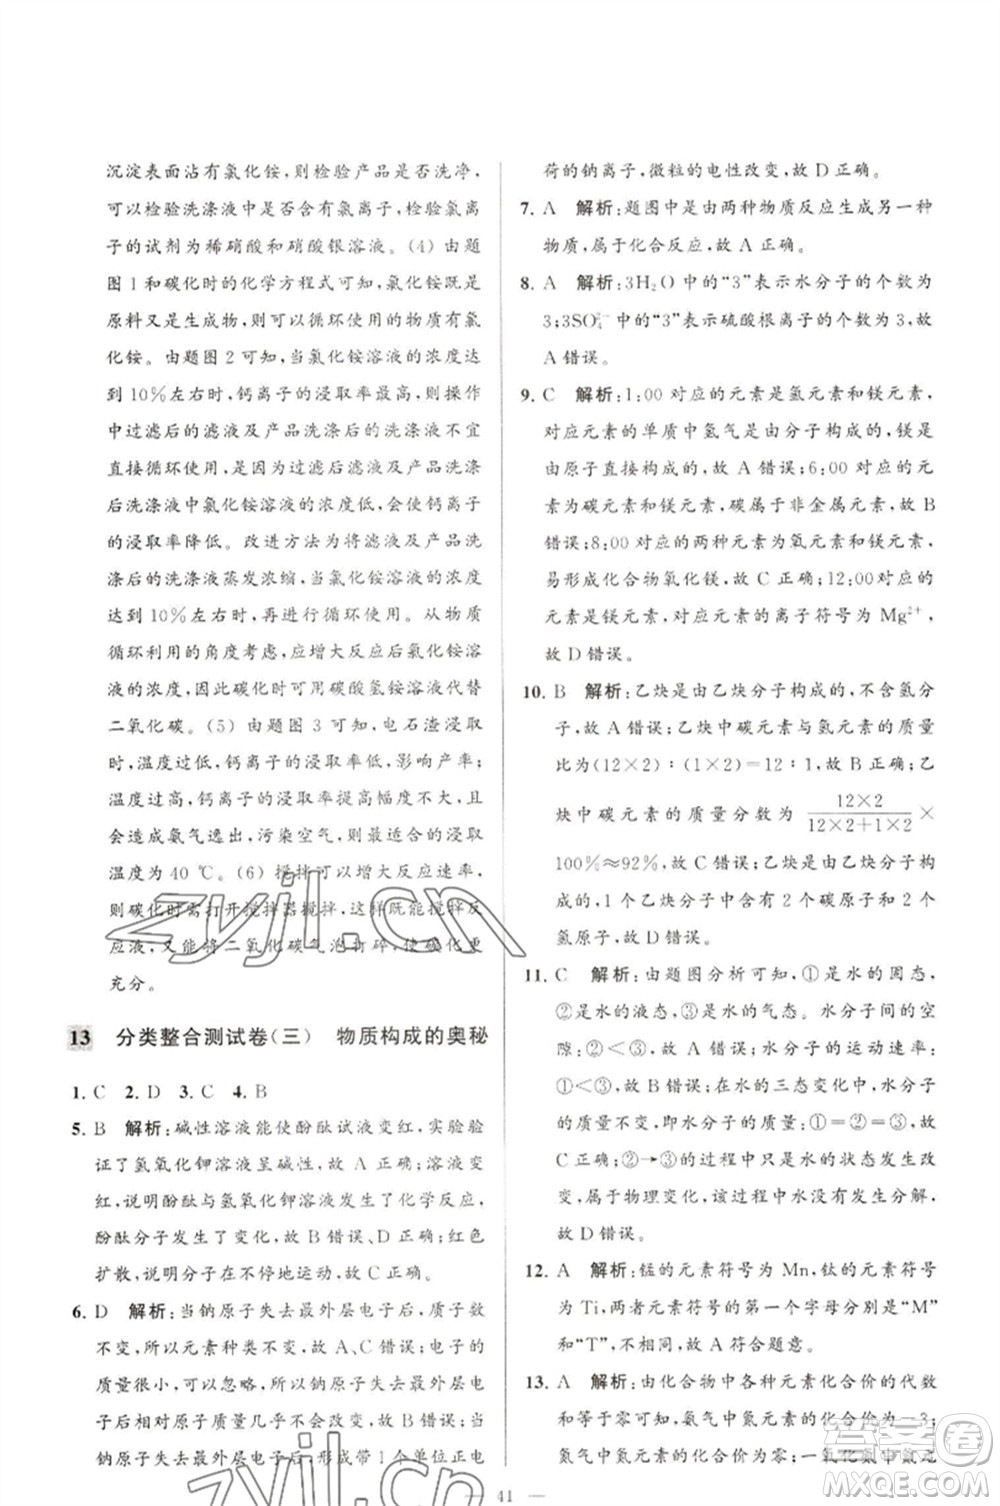 沉淀表面沾有氯化铵,则检验产品是否洗净,
可以检验洗涤液中是否含有氯离子,检验氯离
子的试剂为稀硝酸和硝酸银溶液。(4) 由题
图 1 和碳化时的化学方程式可知,氯化铵既是
原料又是生成物,则可以循环使用的物质有氯
化铵。由题图 2 可知,当氯化铵溶液的浓度达
到 10%左右时,钙离子的浸取率最高,而操作
中过滤后的滤液及产品洗涤后的洗涤液不宜
直接循环使用,是因为过滤后的滤液及产品洗涤
后洗涤液中氯化铵溶液的浓度低,会使钙离子
的浸取率降低。改进方法为将滤液及产品洗
涤后的洗涤液蒸发浓缩,当氯化铵溶液的浓度
达到 10%左右时,再进行循环使用。从物质
循环利用的角度考虑,应增大氨气和氯化铵溶
液的浓度,因此碳化时可用碳酸氢铵溶液代替
二氧化碳。(5) 由题图 3 可知,电石渣浸取
时,温度过低,钙离子的浸取率低,影响产率;
温度过高,钙离子的浸取率提高幅度不大,且
会造成氨气逸出,污染空气,最适合的浸取
温度为 40 ℃。(6) 搅拌可以增大反应速率,
则碳化时需打开搅拌器搅拌,这样既能搅拌反
应液,又能将二氧化碳气泡打碎,使碳化更
充分。
13 分类整合测试卷(三) 物质构成的奥秘
1. C 2. D 3. C 4. B
5. B 解析:碱性溶液能使酚酞试液变红,实验验
证了氢氧化钾溶液呈碱性,故 A 正确;溶液变
红,说明酚酞与氢氧化钾溶液发生了化学反应,
酚酞分子发生了变化,故 B 错误、D 正确;红色
扩散,说明分子在不停地运动,故 C 正确。
6. D 解析:当钠原子失去最外层电子后,质子数
不变,所以元素种类不变,故 A、C错误;电子的
质量很小,可以忽略,所以钠原子失去最外层电
子后相对原子质量几乎不变,故 B 错误;当
钠原子失去最外层电子后,形成带 1 个单位正电
荷的钠离子,微粒的电性改变,故 D 正确。
7. A 解析:题图中是由两种物质反应生成另一种
物质,属于化合反应,故 A 正确。
8. A 解析:3H₂O 中的“3”表示水分子的个数为
3;3SO₄²⁻ 中的“3”表示硫酸根离子的个数为 3,故
A 错误。
9. C 解析:1:00 对应的元素是氢元素和镁元素,
对应元素的单质中氢气是由分子构成的,镁是
由原子直接构成的,故 A 错误;6:00 对应的元
素为碳元素和镁元素,碳属于非金属元素,故 B
错误;8:00 对应的两种元素为氧元素和镁元素,
易形成化合物氧化镁,故 C 正确;12:00 对应的
元素是镁元素,对应元素的离子符号为 Mg²⁺,
故 D 错误。
10. B 解析:乙炔是由乙炔分子构成的,不含氢分
子,故 A 错误;乙炔中碳元素与氢元素的质量
比为(12×2)∶(1×2)=12∶1,故 B 正确;乙
炔中碳元素的质量分数为 12×2/(12×2+1×2) ×
100%≈92%,故 C 错误;乙炔是由乙炔分子构
成的,1 个乙炔分子中含有 2 个碳原子和 2 个
氢原子,故 D 错误。
11. C 解析:由题图分析可知,①是水的固态,
②是水的液态,③是水的气态。水分子间有空
隙:②<③,故 A 错误;水分子的运动速率:
①<③,故 B 错误;在水的三态变化中,水分子
的质量不变,即水分子的质量:①=③=②,故
C 正确;②→③的过程中只是水的状态发生改
变,属于物理变化,该过程水没有发生分解,
故 D 错误。
12. A 解析:锰的元素符号为 Mn,钛的元素符号
为 Ti,两者元素符号的第一个字母分别为“M”
和“T”,不相同,故 A 符合题意。
13. A 解析:由化合物中各种元素化合价的代数
和等于零可知,氨气中氮元素的化合价为-3;
氮气中氮元素的化合价为零;一氧化氮中氮元
41
zyjl.cn
zyjl.cn
答案圈
MXQE.COM